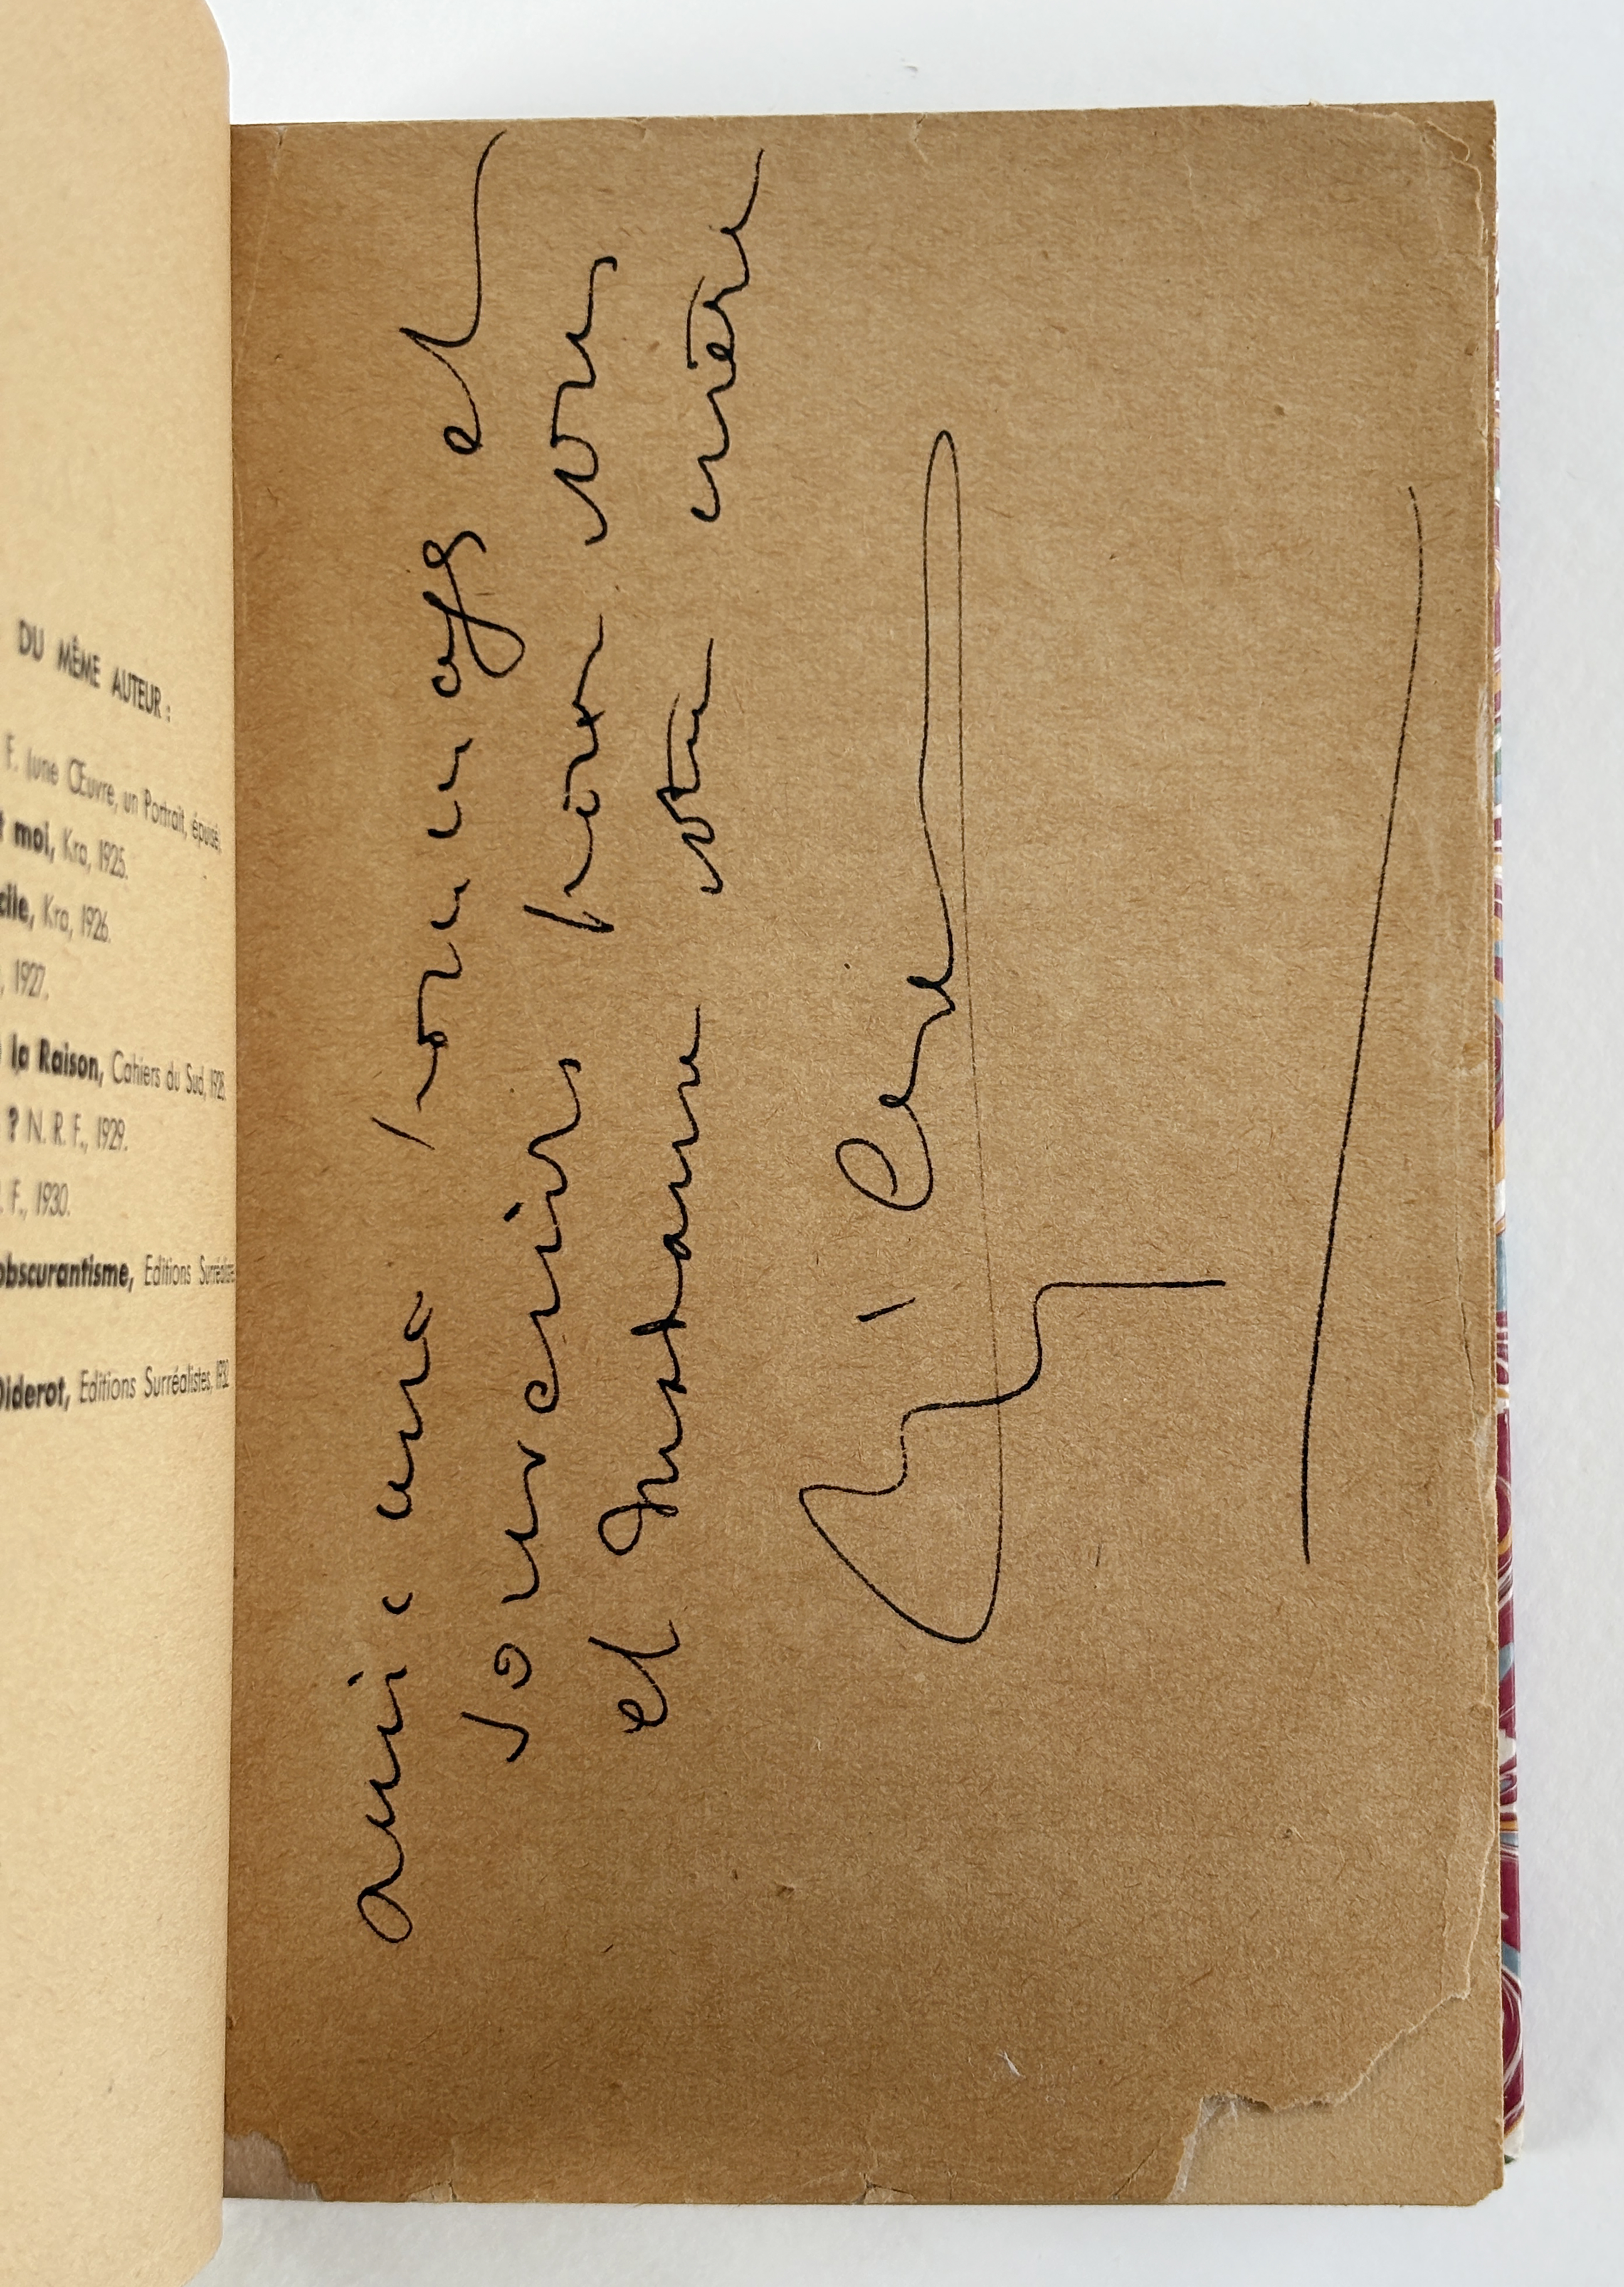 DU MÊME AUTEUR :
F. (une Œuvre, un Portrait, épuisé.
t moi, Kra, 1925.
cile, Kra, 1926.
, 1927.
la Raison, Cahiers du Sud, 1928.
? N. R. F., 1929.
. F., 1930.
obscurantisme, Editions Surréalistes
Diderot, Editions Surréalistes, 1932
amicaux hommages et
souvenirs pour vous
et Madame votre mère
Crevel